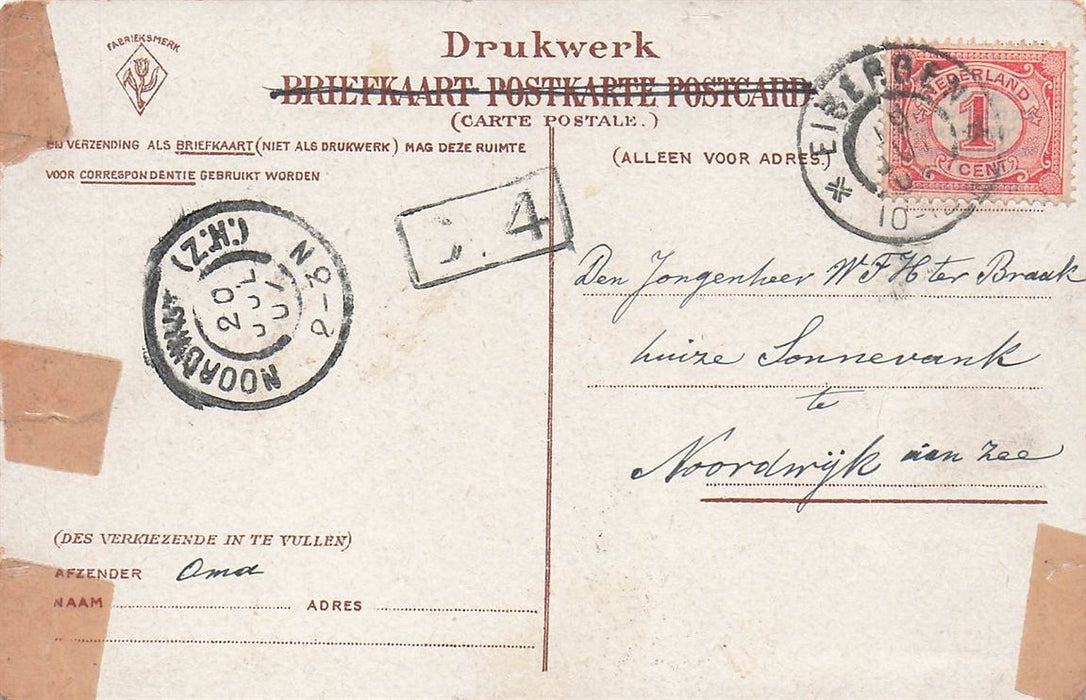 FABRIEKSMERK
Drukwerk
BRIEFKAART POSTKARTE POSTCARD
(CARTE POSTALE.)
BIJ VERZENDING ALS BRIEFKAART (NIET ALS DRUKWERK) MAG DEZE RUIMTE
VOOR CORRESPONDENTIE GEBRUIKT WORDEN
(ALLEEN VOOR ADRES.)
NEDERLAND
1
CENT
EIBERGEN
10
4
NOORDWIJK
(Z.H.)
20 JUL
2-3 N
Den Jongenheer W F H ter Braak
huize Sonnevank
te
Noordwijk aan Zee
(DES VERKIEZENDE IN TE VULLEN)
AFZENDER Oma
NAAM ADRES